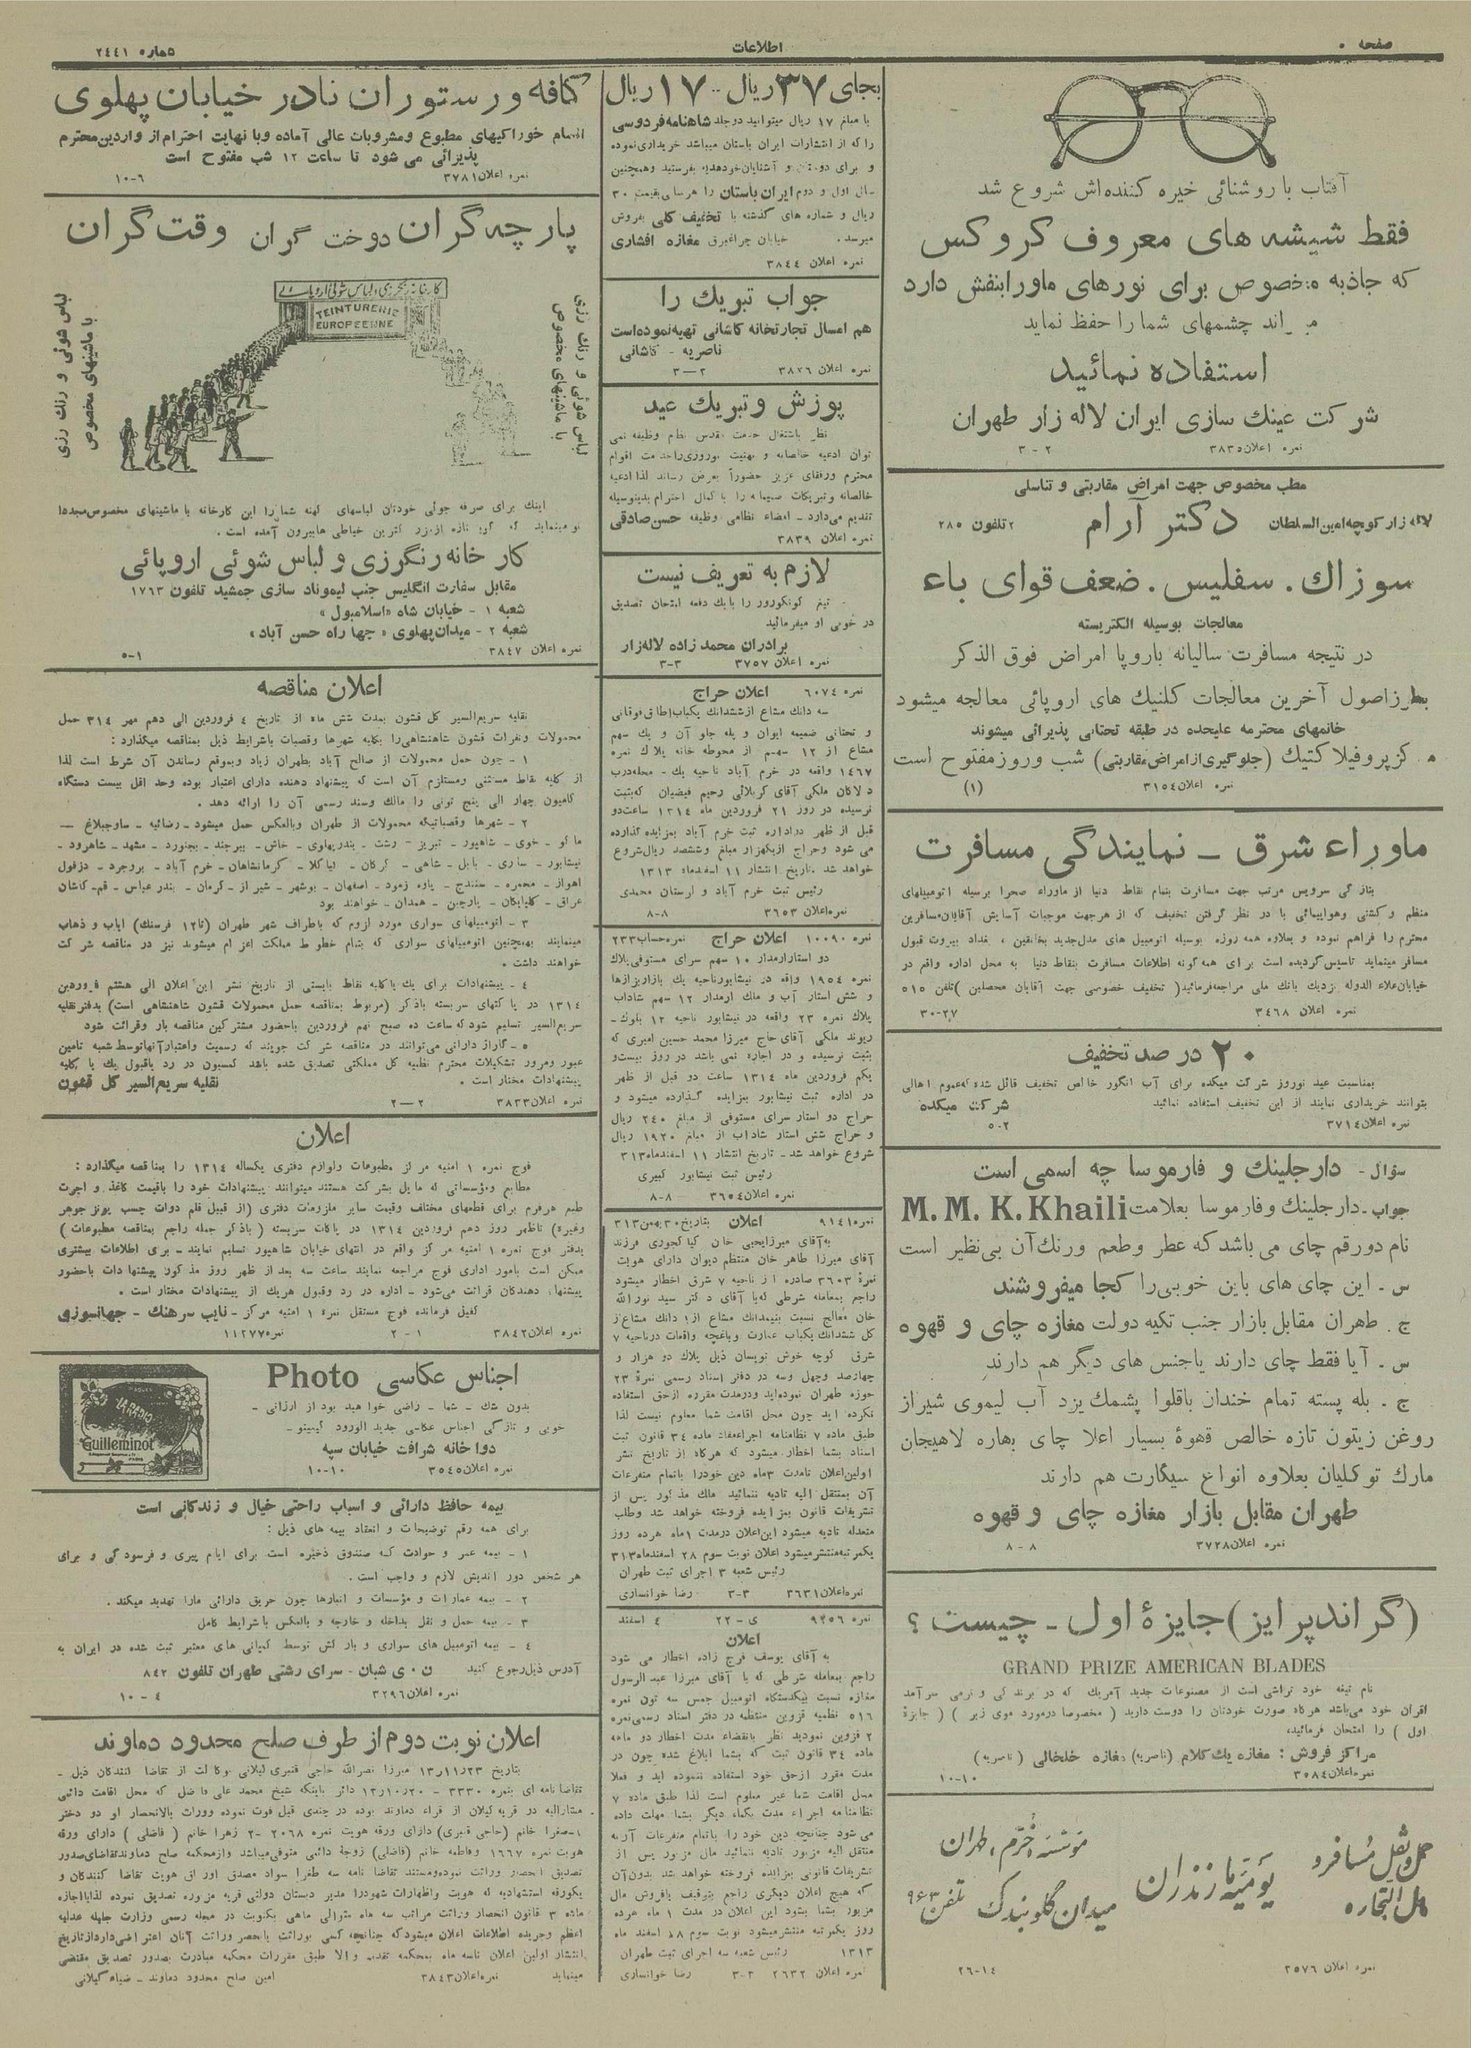 صفحه
اطلاعات
شماره ۲۴۴۱
آفتاب با روشنائی خیره کننده‌اش شروع شد
فقط شیشه های معروف کروکس
که جاذبه مخصوص برای نورهای ماورابنفش دارد
چشمهای شما را حفظ نماید
استفاده نمائید
شرکت عینك سازی ایران لاله زار طهران
نمره اعلان ۳۸۳۵ ۲ - ۳
مطب مخصوص جهت امراض مقاربتی و تناسلی
لاله زار کوچه امین السلطان دکتر آرام تلفون ۲۸۵
سوزاك. سفلیس. ضعف قوای باء
معالجات بوسیله الکتریسته
در نتیجه مسافرت سالیانه باروپا امراض فوق الذکر
بطرزاصول آخرین معالجات کلنیك های اروپائی معالجه میشود
خانمهای محترمه علیحده در طبقه تحتانی پذیرائی میشوند
کزپروفیلاکتیك (جلوگیری از امراض مقاربتی) شب وروز مفتوح است
نمره اعلان ۳۱۵۴ (۱)
ماوراء شرق - نمایندگی مسافرت
بتازگی سرویس مرتب جهت مسافرت بتمام نقاط دنیا از ماوراء صحرا بوسیله اتومبیلهای
منظم و کشتی وهواپیمائی با در نظر گرفتن تخفیف که از هرجهت موجبات آسایش آقایان مسافرین
محترم را فراهم نموده و بعلاوه همه روزه بوسیله اتومبیل های مدل جدید بخانقین ، بغداد بیروت قبول
مسافر مینماید تاسیس گردیده است برای همه گونه اطلاعات مسافرت بنقاط دنیا به محل اداره واقع در
خیابان علاء الدوله نزدیك بانك ملی مراجعه فرمائید( تخفیف خصوصی جهت آقایان محصلین )تلفن ۵۱۵
نمره اعلان ۳۴۶۸ ۲۷-۳۰
۲۰ در صد تخفیف
بمناسبت عید نوروز شرکت میکده برای آب انگور خالص تخفیف قائل شده که عموم اهالی
بتوانند خریداری نمایند از این تخفیف استفاده نمائید شرکت میکده
نمره اعلان ۳۷۱۴ ۲-۵
سؤال - دارجلینك و فارموسا چه اسمی است
جواب - دارجلینك وفارموسا بعلامت M. M. K. Khaili
نام دورقم چای می باشد که عطر وطعم ورنك آن بی‌نظیر است
س . این چای های باین خوبی را کجا میفروشند
ج . طهران مقابل بازار جنب تکیه دولت مغازه چای و قهوه
س . آیا فقط چای دارند یاجنس های دیگر هم دارند
ج . بله پسته تمام خندان باقلوا پشمك یزد آب لیموی شیراز
روغن زیتون تازه خالص قهوۀ بسیار اعلا چای بهاره لاهیجان
مارك توکلیان بعلاوه انواع سیگارت هم دارند
طهران مقابل بازار مغازه چای و قهوه
نمره اعلان ۳۷۲۸ ۸ - ۸
(گراند پرایز) جایزۀ اول - چیست ؟
GRAND PRIZE AMERICAN BLADES
نام تیغه خود تراشی است از مصنوعات جدید آمریك که در برندگی و نرمی سرآمد
اقران خود می‌باشد هرگاه صورت خودتان را دوست دارید ( مخصوصا درمورد موی زبر ) ( جایزۀ
اول ) را امتحان فرمائید،
مراکز فروش : مغازه یك کلام (ناصریه) مغازه خلخالی (ناصریه)
نمره اعلان ۳۵۸۴ ۱۰-۱۰
حمل و نقل مسافر و
مال التجاره
یومیّه مازندران
مؤسسه محترم ، طهران
میدان گلوبندك تلفن ۹۶۳
نمره اعلان ۳۵۷۶ ۱۴-۲۶
بجای ۳۷ ریال .. ۱۷ ریال
با مبلغ ۱۷ ریال میتوانید دوجلد شاهنامه فردوسی
را که از انتشارات ایران باستان میباشد خریداری نموده
و برای دوستان و آشنایان خود هدیه بفرستید وهمچنین
سال اول و دوم ایران باستان را هرسالی بقیمت ۳۰
ریال و شماره های گذشته با تخفیف کلی بفروش
میرسد . خیابان چراغبرق مغازه افشاری
نمره اعلان ۳۸۴۴
جواب تبریك را
هم امسال تجارتخانه کاشانی تهیه نموده است
ناصریه - کاشانی
نمره اعلان ۳۸۲۶ ۲-۳
پوزش و تبریك عید
نظر باشتغال خدمت مقدس نظام وظیفه نمی
توان ادعیه خالصانه و تهنیت نوروزی را خدمت اقوام
محترم ورفقای عزیز حضوراً بعرض رساند لذا ادعیه
خالصانه وتبریکات صمیمانه را با کمال احترام بدینوسیله
تقدیم می‌دارد - امضاء نظامی وظیفه حسن صادقی
نمره اعلان ۳۸۳۹
لازم به تعریف نیست
تیغ کونکورور را با یك دفعه امتحان تصدیق
در خوبی او میفرمائید
برادران محمد زاده لاله زار
نمره اعلان ۳۷۵۷ ۳-۳
نمره ۶۰۷۴ اعلان حراج
سه دانك مشاع از ششدانك یکباب اطاق فوقانی
و تحتانی ضمیمه ایوان و پله جلو آن و یك سهم
مشاع از ۱۲ سهم از محوطه خانه پلاك نمره
۱۴۶۷ واقعه در خرم آباد ناحیه یك - محله درب
دلاکان ملکی آقای کربلائی رحیم فیضیان که بثبت
نرسیده در روز ۲۱ فروردین ماه ۱۳۱۴ ساعت دو
قبل از ظهر در اداره ثبت خرم آباد بمزایده گذارده
می شود وحراج از یکهزار مبلغ وششصد ریال شروع
خواهد شد بتاریخ انتشار ۱۱ اسفند ماه ۱۳۱۳
رئیس ثبت خرم آباد و لرستان محمدی
نمره اعلان ۳۶۵۳ ۸-۸
نمره ۱۰۰۹۰ اعلان حراج نمره حساب ۲۳۳
دو استار ار مدار ۱۰ سهم سرای مستوفی پلاك
نمره ۱۹۵۴ واقعه در نیشابور ناحیه یك بازار بزازها
و شش استار آب و ملك ارمدار ۱۲ سهم شاداب
پلاك نمره ۲۳ واقعه در نیشابور ناحیه ۱۲ بلوك -
ریوند ملکی آقای حاج میرزا محمد حسین امیری که
بثبت نرسیده و در اجاره نمی باشد در روز بیست و
یکم فروردین ماه ۱۳۱۴ ساعت دو قبل از ظهر
در اداره ثبت نیشابور بمزایده گذارده میشود و
حراج دو استار سرای مستوفی از مبلغ ۲۴۰ ریال
و حراج شش استار شاداب از مبلغ ۱۹۲۰ ریال
شروع خواهد شد - تاریخ انتشار ۱۱ اسفند ماه ۳۱۳
رئیس ثبت نیشابور کبیری
نمره اعلان ۳۶۵۴ ۸-۸
نمره ۹۱۴۱ اعلان
به آقای میرزا یحیی خان کیا کجوری فرزند
آقای میرزا طاهر خان منتظم دیوان دارای هویت
نمرۀ ۳۶۰۳ صادره از ناحیه ۷ شرق اخطار میشود
راجع بمعامله شرطی که با آقای دکتر سید نورالله
خان معالج نسبت بنیمدانك مشاع از ۱ دانك مشاع از
کل ششدانك یکباب عمارت و باغچه واقعات در ناحیه ۷
شرق کوچه خوش نویسان ذیل پلاك دو هزار و
چهارصد وچهل وسه در دفتر اسناد رسمی نمرۀ ۲۳
حوزه طهران نموده‌اید ودرمدت مقرره از حق استفاده
نکرده اید چون محل اقامت شما معلوم نیست لذا
طبق ماده ۷ نظامنامه اجراء مفاد ماده ۳۴ قانون ثبت
اسناد بشما اخطار میشود که هرگاه از تاریخ نشر
اولین اعلان تامدت ۳ ماه دین خودرا باتمام متفرعات
آن بمنتقل الیه تادیه ننمائید ملك مذکور پس از
تشریفات قانون بمزایده فروخته خواهد شد وطلب
متعدله تادیه میشود این اعلان درمدت ۱ ماه هرده روز
یکمرتبه منتشر میشود اعلان نوبت سوم ۲۸ اسفند ماه ۳۱۳
رئیس شعبه ۳ اجرای ثبت طهران
نمره اعلان ۳۶۳۱ ۳-۳ رضا خوانساری
نمره ۹۲۵۶ ی - ۲۲ ۴ اسفند
اعلان
به آقای یوسف فرج زاده اخطار می شود
راجع بمعامله شرطی که با آقای میرزا عبدالرسول
مغازه نسبت بیکدستگاه اتومبیل جمس سه تون نمره
۵۱۶ نظمیه قزوین منتظمه در دفتر اسناد رسمی نمره
۲ قزوین نمودید نظر بانقضاء مدت اخطار دو ماهه
ماده ۳۴ قانون ثبت که بشما ابلاغ شده چون در
مدت مقرر از حق خود استفاده ننموده اید و فعلا
محل اقامت شما غیر معلوم است لذا طبق ماده ۷
نظامنامه اجراء مدت یکماه دیگر بشما مهلت داده
می شود چنانچه دین خود را باتمام متفرعات آن به
منتقل الیه مزبور تادیه ننمائید مال مزبور پس از
تشریفات قانونی بمزایده فروخته خواهد شد بدون آن
که هیچ اعلان دیگری راجع بتوقیف یافروش مال
مزبور بشما بشود این اعلان در مدت ۱ ماه هرده
روز یکمرتبه منتشر میشود نوبت سوم ۲۸ اسفند ماه
۱۳۱۳ رئیس شعبه سه اجرای ثبت طهران
نمره اعلان ۲۶۳۲ ۳-۳ رضا خوانساری
کافه و رستوران نادر خیابان پهلوی
اقسام خوراکیهای مطبوع ومشروبات عالی آماده وبا نهایت احترام از واردین محترم
پذیرائی می شود تا ساعت ۱۲ شب مفتوح است
نمره اعلان ۳۷۸۱ ۶-۱۰
پارچه گران دوخت گران وقت گران
لباس شوئی و رنك رزی
با ماشینهای مخصوص
کارخانه رنگرزی و لباس شوئی اروپائی
TEINTURERIE
EUROPÉENNE
لباس شوئی و رنك رزی
با ماشینهای مخصوص
اینك برای صرفه جوئی خودتان لباسهای کهنه شما را این کارخانه با ماشینهای مخصوص مجددا
نو مینماید که گویا تازه از زیر کترین خیاطی هابیرون آمده است .
کارخانه رنگرزی و لباس شوئی اروپائی
مقابل سفارت انگلیس جنب لیموناد سازی جمشید تلفون ۱۷۶۳
شعبه ۱ - خیابان شاه «اسلامبول»
شعبه ۲ - میدان پهلوی «چهار راه حسن آباد»
نمره اعلان ۳۸۴۷ ۱-۵
اعلان مناقصه
نقلیه سریع السیر کل قشون بمدت شش ماه از تاریخ ۴ فروردین الی دهم مهر ۳۱۴ حمل
محمولات و نفرات قشون شاهنشاهی را بکلیه شهرها وقصبات باشرایط ذیل بمناقصه میگذارد :
۱ - چون حمل محمولات از صالح آباد بطهران زیاد وبموقع رساندن آن شرط است لذا
از کلیه نقاط مستثنی ومستلزم آن است که پیشنهاد دهنده دارای اعتبار بوده وحد اقل بیست دستگاه
کامیون چهار الی پنج تونی را مالك وسند رسمی آن را ارائه دهد .
۲ - شهرها وقصباتیکه محمولات از طهران وبالعکس حمل میشود - رضائیه - ساوجبلاغ -
ماکو - خوی - شاهپور - تبریز - رشت - بندر پهلوی - خاش - بیرجند - بجنورد - مشهد - شاهرود -
نیشابور - ساری - بابل - شاهی - گرگان - کرمانشاهان - خرم آباد - بروجرد - دزفول
اهواز - محمره - سنندج - اصفهان - بوشهر - شیراز - کرمان - بندر عباس - قم - کاشان
عراق - گلپایگان - پارچین - همدان - خواهند بود
۳ - اتومبیلهای سواری مورد لزوم که باطراف شهر طهران (تا ۱۲ فرسنك) ایاب و ذهاب
مینمایند بهمچنین اتومبیلهای سواری که بتمام خطوط مملکت اعزام میشوند نیز در مناقصه شرکت
خواهند داشت .
۴ - پیشنهادات برای یك یا کلیه نقاط بایستی از تاریخ نشر این اعلان الی هشتم فروردین
۱۳۱۴ در پاکتهای سربسته باذکر (مربوط بمناقصه حمل محمولات قشون شاهنشاهی است) بدفتر نقلیه
سریع السیر تسلیم شود که ساعت ده صبح نهم فروردین باحضور مشترکین مناقصه باز وقرائت شود
۵ - گاراژ دارانی می‌توانند در مناقصه شرکت جویند که رسمیت واعتبار آنها توسط شعبه تامین
عبور ومرور تشکیلات محترم نظمیه کل مملکتی تصدیق شده باشد کمسیون در رد یا قبول یك یا کلیه
پیشنهادات مختار است . نقلیه سریع السیر کل قشون
نمره اعلان ۳۸۳۳ ۲-۲
اعلان
فوج نمره ۱ امنیه مرکز مطبوعات ولوازم دفتری یکساله ۱۳۱۴ را بمناقصه میگذارد :
مطابع ومؤسساتی که مایل بشرکت هستند میتوانند پیشنهادات خود را باقیمت کاغذ و اجرت
طبع هرفرم برای قطعهای مختلف وقیمت سایر ملزومات دفتری (از قبیل قلم دوات چسب یونز جوهر
وغیره) تاظهر روز دهم فروردین ۱۳۱۴ در پاکات سربسته ( باذکر جمله راجع بمناقصه مطبوعات )
بدفتر فوج نمره ۱ امنیه مرکز واقع در انتهای خیابان شاهپور تسلیم نمایند - برای اطلاعات بیشتری
ممکن است بامور اداری فوج مراجعه نمایند ساعت سه بعد از ظهر روز مذکور پیشنهادات باحضور
پیشنهاد دهندگان قرائت می‌شود - اداره در رد وقبول هریك از پیشنهادات مختار است .
کفیل فرمانده فوج مستقل نمره ۱ امنیه مرکز - نایب سرهنك - جهانسوزی
نمره اعلان ۳۸۴۲ ۱-۲ نمره ۱۱۲۷۷
اجناس عکاسی Photo
بدون شك - شما - راضی خواهید بود از ارزانی -
خوبی و تازگی اجناس عکاسی جدید الورود گیمینو -
دواخانه شرافت خیابان سپه
نمره اعلان ۳۵۴۵ ۱۰-۱۰
LA RADIO
Guilleminot
بیمه حافظ دارائی و اسباب راحتی خیال و زندگانی است
برای همه رقم توضیحات و انعقاد بیمه های ذیل :
۱ - بیمه عمر و حوادث که صندوق ذخیره است برای ایام پیری و فرسودگی و برای
هر شخص دور اندیش لازم و واجب است .
۲ - بیمه عمارات و مؤسسات و انبارها چون حریق دارائی مارا تهدید میکند .
۳ - بیمه حمل و نقل بداخله و خارجه و بالعکس با شرایط کامل
۴ - بیمه اتومبیل های سواری و بارکش توسط کمپانی های معتبر ثبت شده در ایران به
آدرس ذیل رجوع کنید ن . ی شبان - سرای رشتی طهران تلفون ۸۴۲
نمره اعلان ۳۲۹۶ ۴ - ۱۰
اعلان نوبت دوم از طرف صلح محدود دماوند
بتاریخ ۱۳/۱۱/۲۳ میرزا نصرالله حاجی قنبری گیلانی بوکالت از تقاضا کنندگان ذیل -
تقاضانامه ای بنمره ۳۳۳۰ - ۱۳/۱۰/۲۰ دائر باینکه شیخ محمد علی فاضل که محل اقامت دائمی
مشارالیه در قریه گیلان از قراء دماوند بوده در چندی قبل فوت نموده ووراث بالانحصار او دو دختر
۱ - صغرا خانم (حاجی قنبری) دارای ورقه هویت نمره ۲۰۶۸ - ۲ زهرا خانم ( فاضلی ) دارای ورقه
هویت نمره ۱۶۶۷ وفاطمه خانم (فاضلی) زوجۀ دائمی متوفی میباشد وازمحکمه صلح دماوند تقاضای صدور
تصدیق انحصار وراثت نموده ومستند تقاضا نامه سه طغرا سواد مصدق اوراق هویت تقاضا کنندگان و
یکورقه استشهادیه که هویت واظهارات شهود را مدیر دبستان دولتی قریه مزبوره تصدیق نموده لذا با اجازه
ماده ۳ قانون انحصار وراثت مراتب سه ماه متوالی ماهی یکنوبت در مجله رسمی وزارت جلیله عدلیه
اعظم وجریده اطلاعات اعلان میشود که چنانچه کسی بوراثت یا انحصار وراثت آنان اعتراضی دارد از تاریخ
انتشار اولین اعلان تا سه ماه بمحکمه تقدیم والا طبق مقررات محکمه مبادرت بصدور تصدیق مقتضی
مینماید نمره اعلان ۳۸۴۳ امین صلح محدود دماوند - ضیاء گیلانی